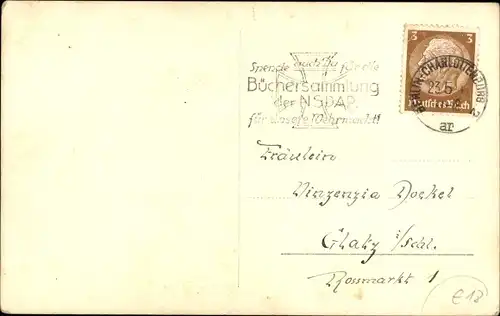 Spende auch Du für die
Büchersammlung
der NSDAP.
für unsere Wehrmacht!
3 3
Deutsches Reich
BERLIN-CHARLOTTENBURG 2
23.5
ar
Fräulein
Vinzenzia Dockel
Glatz i/Schl.
Rossmarkt 1
€18